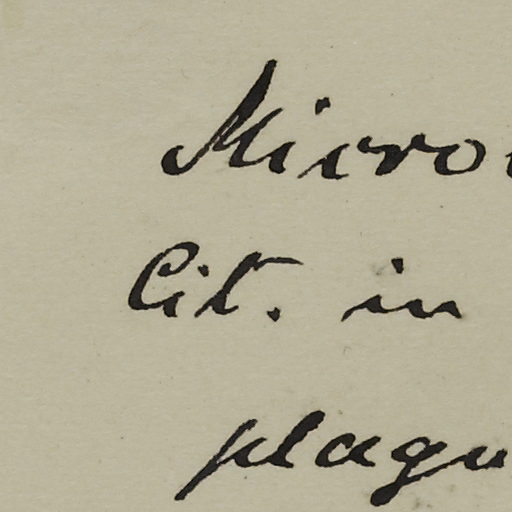 Micro
Cit. in
plagu